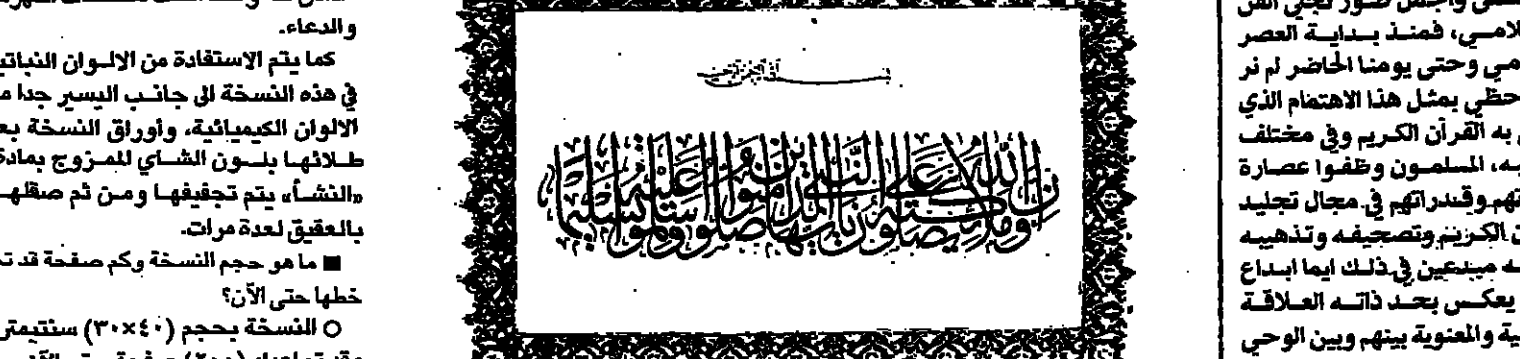 لامـي، فمنـذ بـدايـة العصر
مي وحتى يومنا الحاضر لم نر
حظي بمثل هذا الاهتمام الذي
به القرآن الكريم وفي مختلف
ـه، المسلمـون وظفـوا عصـارة
تهم وقـدراتهم في مجال تجليـد
ن الكـريـم وتصحيفـه وتذهيبـه
ـه مبـدعين في ذلـك ايما ابـداع
يعكـس بحـد ذاتـه العـلاقـة
ية والمعنوية بينهم وبين الوحي
بسم الله الرحمن الرحيم
إن الله وملائكته يصلون على النبي يا أيها الذين آمنوا صلوا عليه وسلموا تسليما
والدعاء.
كما يتم الاستفادة من الالـوان النباتيـ
في هذه النسخة الى جانـب اليسير جدا مـ
الالوان الكيميائية، وأوراق النسخة بعـ
طـلائهـا بلـون الشـاي الممـزوج بمادة
«النشـأ» يتم تجفيفهـا ومـن ثم صقلهـ
بالعقيق لعدة مرات.
■ ما هو حجم النسخة وكم صفحة قد تـ
خطها حتى الآن؟
○ النسخة بحجم (٤٠×٣٠) سنتيمتر